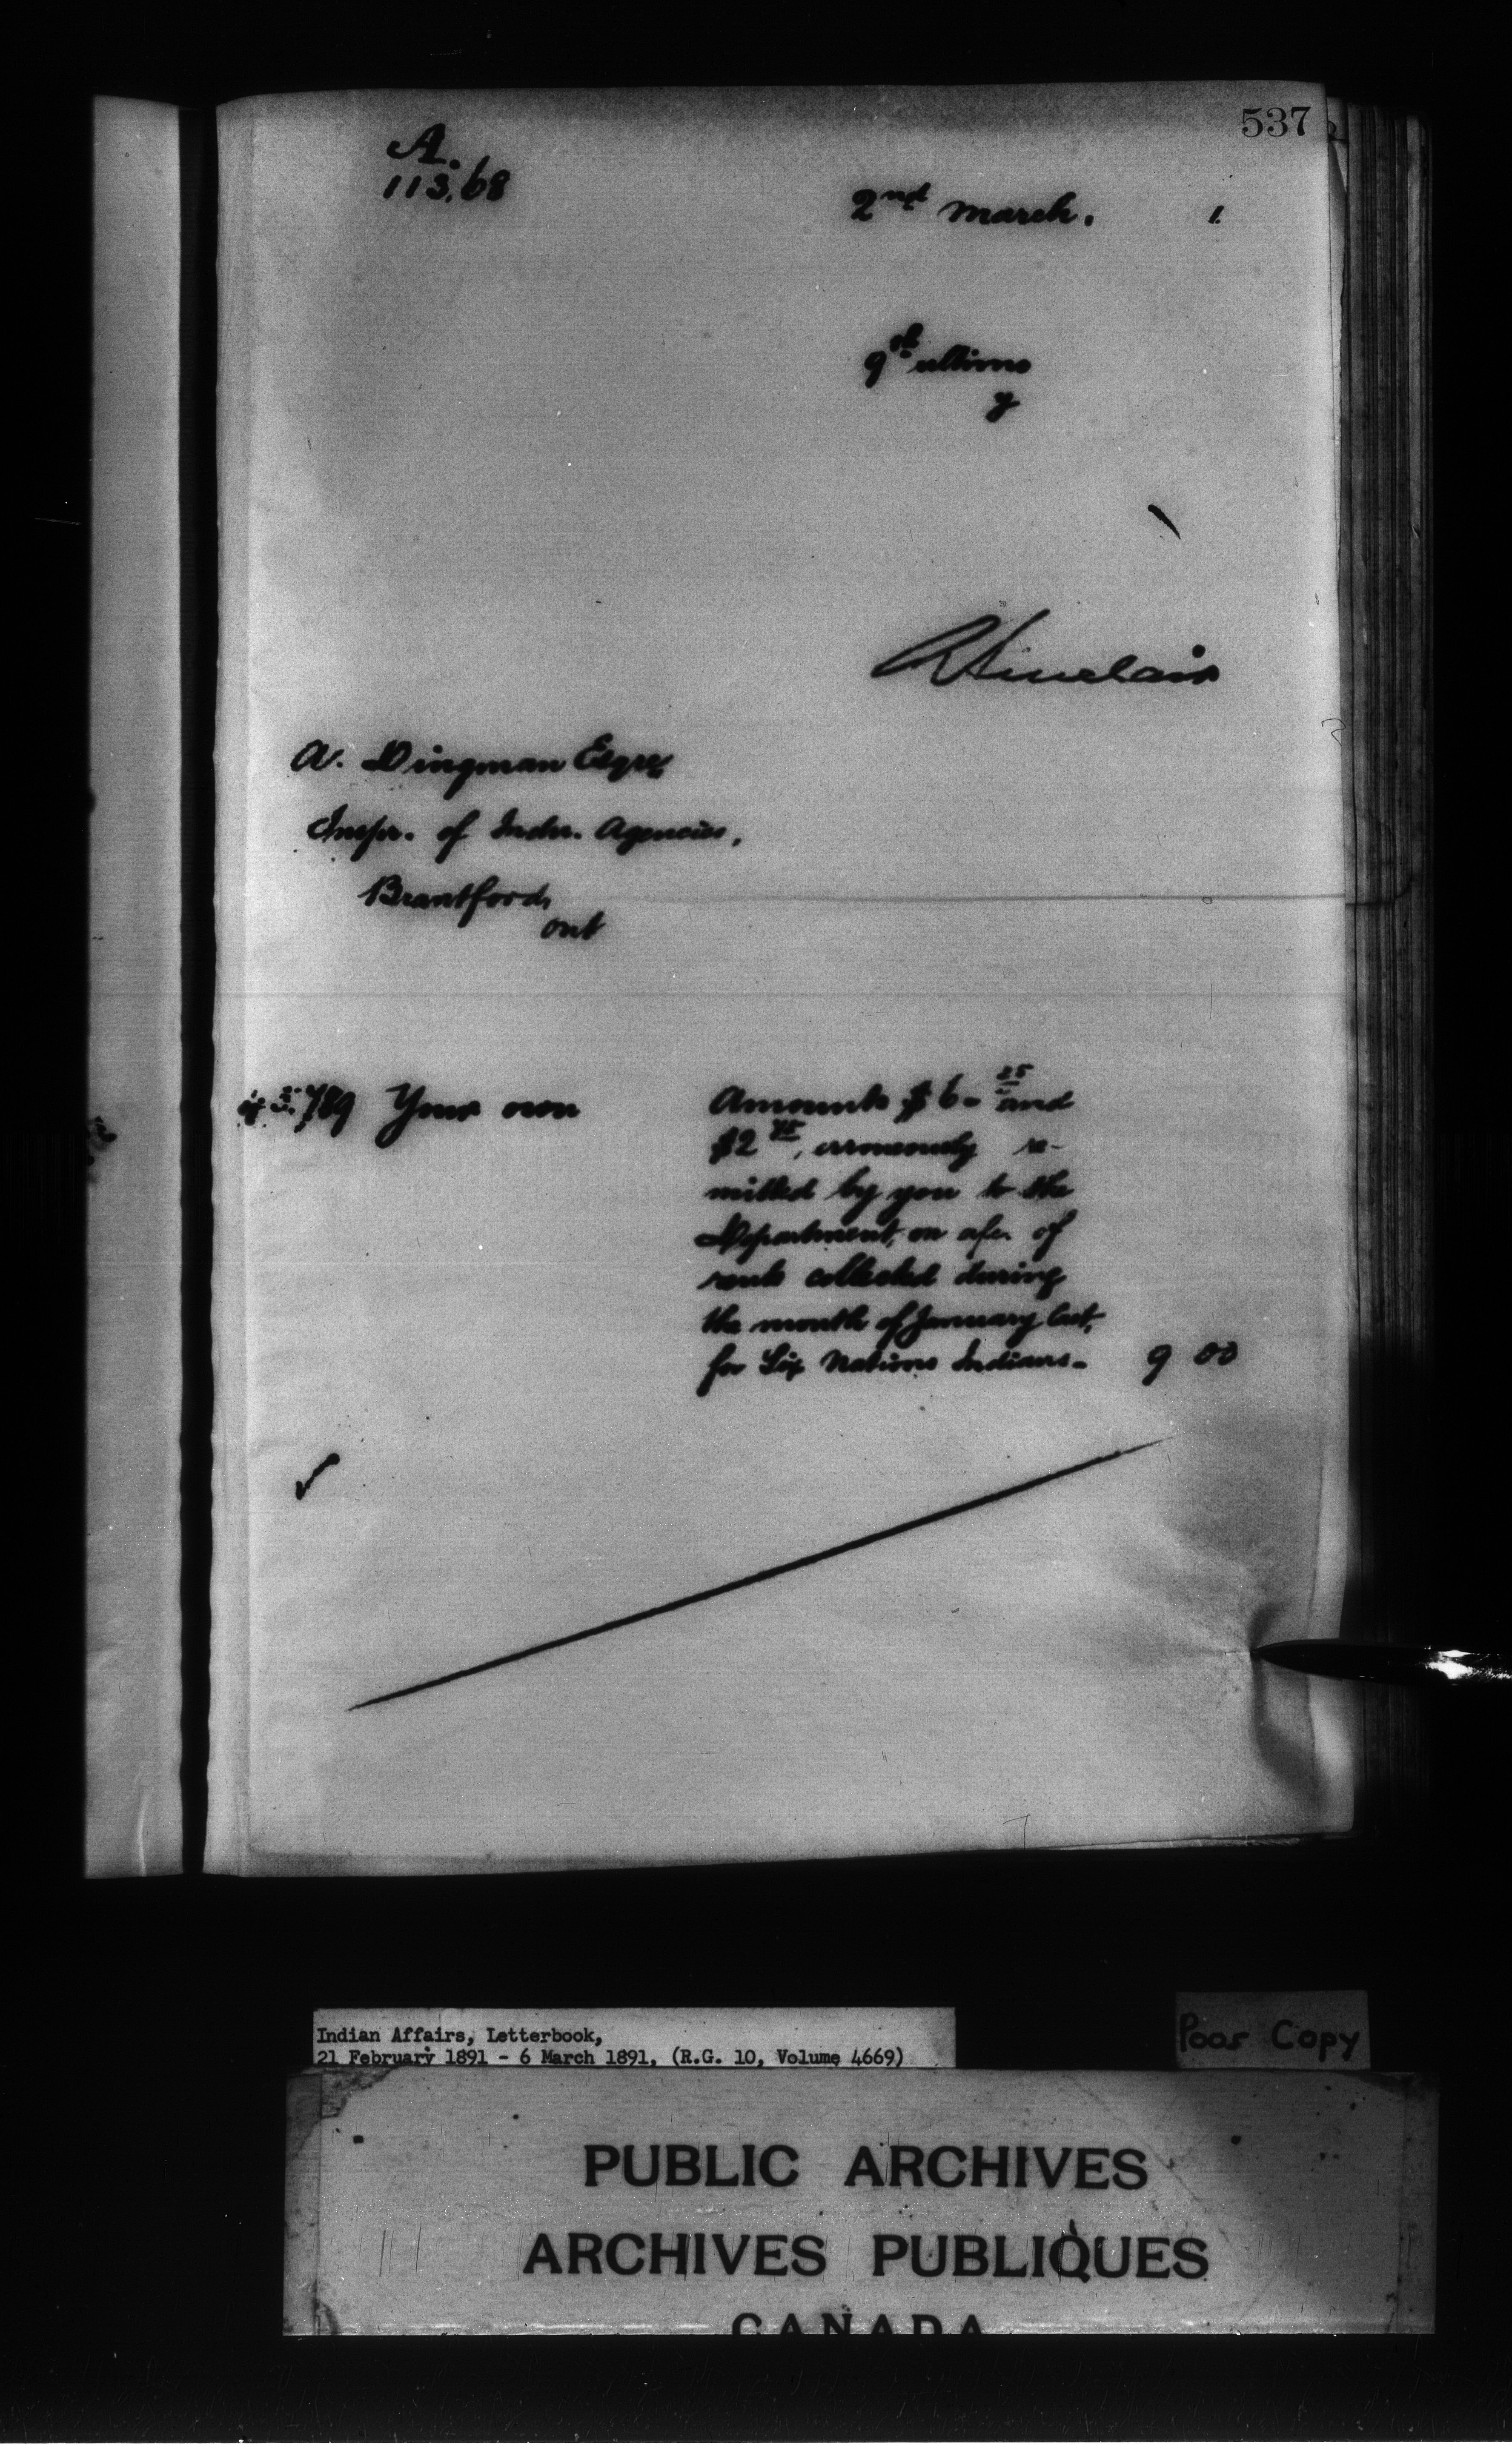 537
A.
113.68
2nd March. 1.
9th ultimo
y
R Sinclair
A. Dingman Esqre
Inspr. of Indn. Agencies,
Brantford,
Ont
5.789 Your own
Amounts $6. 25 and
$2 75, erroneously re-
mitted by you to the
Department, on a/c. of
rents collected during
the month of January last,
for Six Nations Indians- 9 00
Indian Affairs, Letterbook,
21 February 1891 - 6 March 1891, (R.G. 10, Volume 4669)
Poor Copy
PUBLIC ARCHIVES
ARCHIVES PUBLIQUES
CANADA